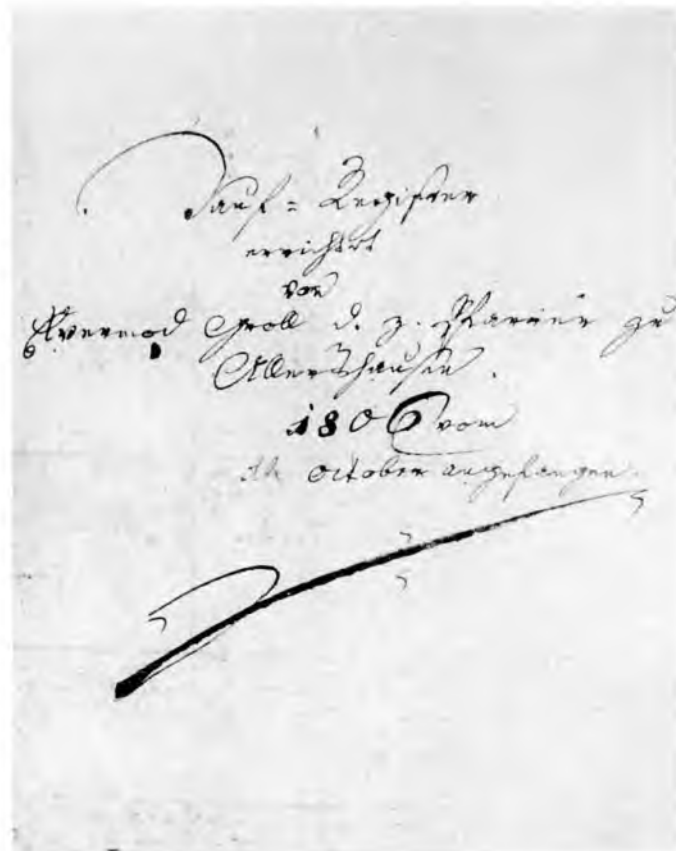 Tauf = Register
errichtet
von
Groll d. z. Pfarrer zu
Allershausen.
1806 vom
October angefangen.